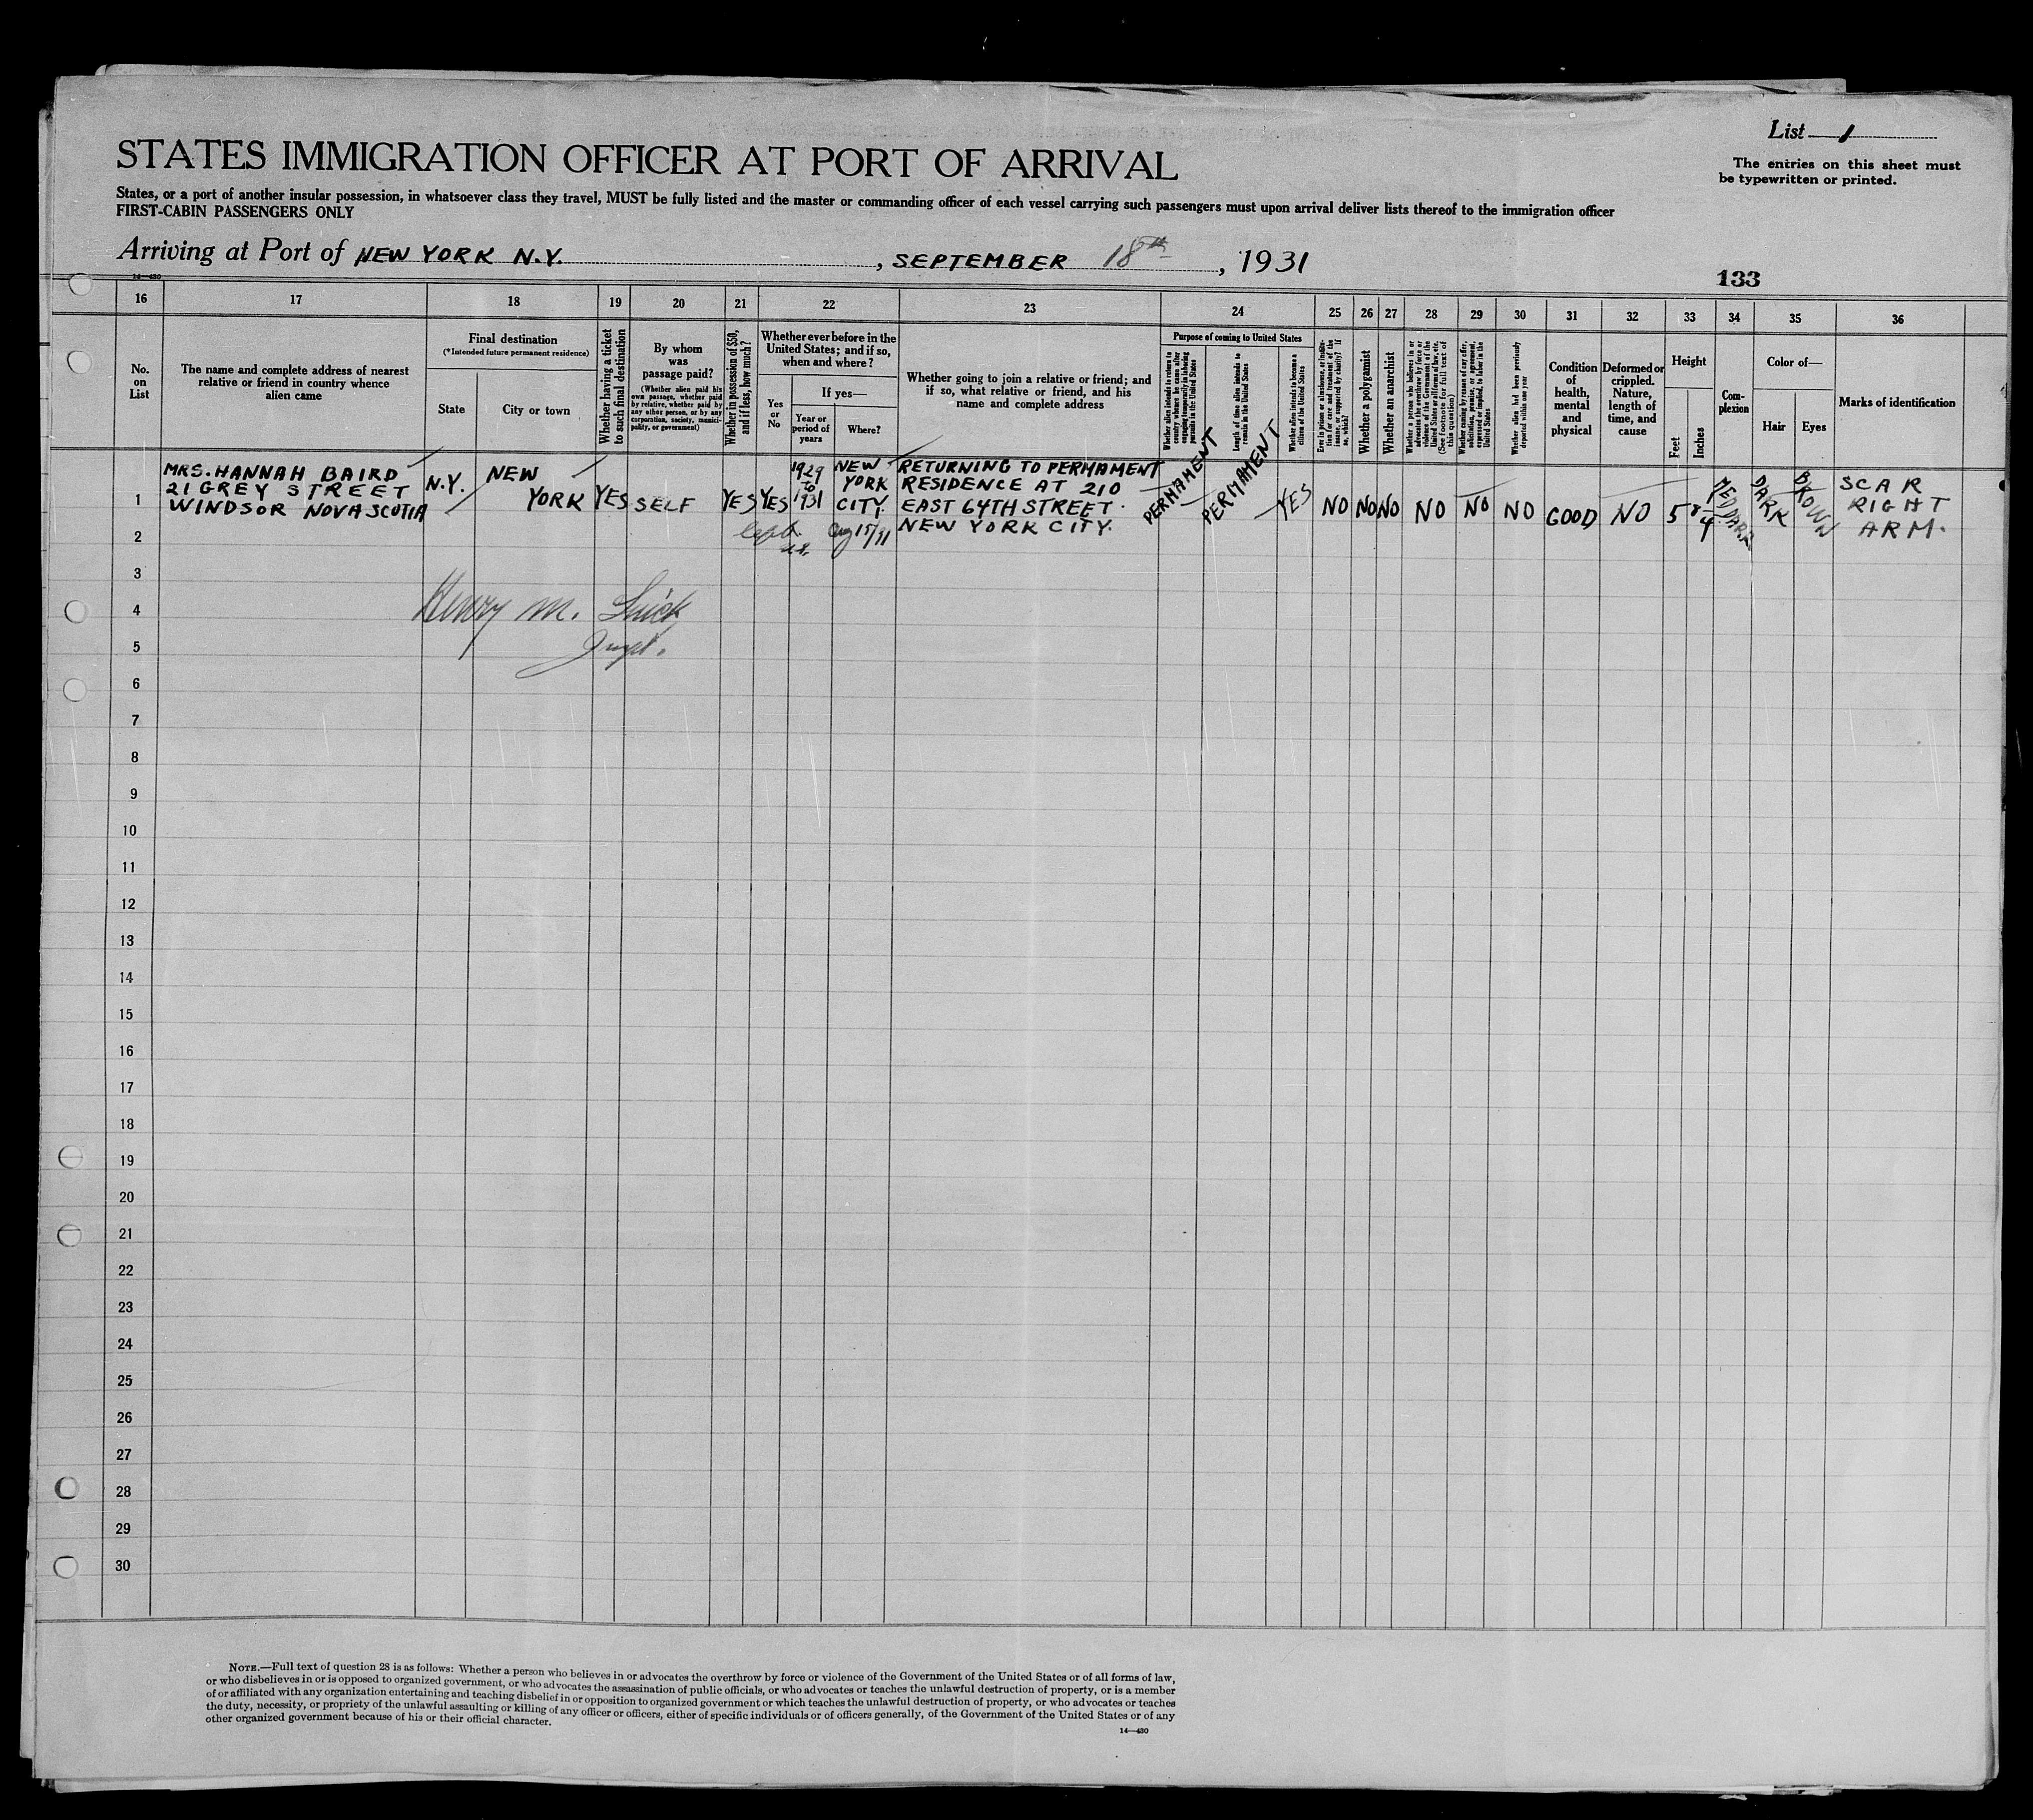 List 1
The entries on this sheet must
be typewritten or printed.
STATES IMMIGRATION OFFICER AT PORT OF ARRIVAL
States, or a port of another insular possession, in whatsoever class they travel, MUST be fully listed and the master or commanding officer of each vessel carrying such passengers must upon arrival deliver lists thereof to the immigration officer
FIRST-CABIN PASSENGERS ONLY
Arriving at Port of NEW YORK N.Y., SEPTEMBER 18th, 1931
14—430
133
16 17 18 19 20 21 22 23 24 25 26 27 28 29 30 31 32 33 34 35 36
No.
on
List
The name and complete address of nearest
relative or friend in country whence
alien came
Final destination
(*Intended future permanent residence)
State
City or town
Whether having a ticket
to such final destination
By whom
was
passage paid?
(Whether alien paid his
own passage, whether paid
by relative, whether paid by
any other person, or by any
corporation, society, munici-
pality, or government)
Whether in possession of $50,
and if less, how much?
Whether ever before in the
United States; and if so,
when and where?
Yes
or
No
If yes—
Year or
period of
years
Where?
Whether going to join a relative or friend; and
if so, what relative or friend, and his
name and complete address
Purpose of coming to United States
Whether alien intends to return to
country whence he came after
engaging temporarily in laboring
pursuits in the United States
Length of time alien intends to
remain in the United States
Whether alien intends to become a
citizen of the United States
Ever in prison or almshouse, or institu-
tion for care and treatment of the
insane, or supported by charity? If
so, which?
Whether a polygamist
Whether an anarchist
Whether a person who believes in or
advocates the overthrow by force or
violence of the Government of the
United States or all forms of law, etc.
(See footnote for full text of
this question)
Whether coming by reason of any offer,
solicitation, promise, or agreement,
expressed or implied, to labor in the
United States
Whether alien had been previously
deported within one year
Condition
of
health,
mental
and
physical
Deformed or
crippled.
Nature,
length of
time, and
cause
Height
Feet
Inches
Com-
plexion
Color of—
Hair
Eyes
Marks of identification
1
MRS. HANNAH BAIRD
21 GREY STREET
WINDSOR NOVA SCOTIA
N.Y.
NEW
YORK
YES
SELF
YES
YES
1929
to
1931
NEW
YORK
CITY.
RETURNING TO PERMAMENT
RESIDENCE AT 210
EAST 64TH STREET.
NEW YORK CITY.
PERMAMENT
PERMAMENT
YES
NO
NO
NO
NO
NO
NO
GOOD
NO
5
4
MED DARK
DARK
BROWN
SCAR
RIGHT
ARM.
2
Aug 15/31
3
4
Henry M.
5
6
7
8
9
10
11
12
13
14
15
16
17
18
19
20
21
22
23
24
25
26
27
28
29
30
NOTE.—Full text of question 28 is as follows: Whether a person who believes in or advocates the overthrow by force or violence of the Government of the United States or of all forms of law,
or who disbelieves in or is opposed to organized government, or who advocates the assassination of public officials, or who advocates or teaches the unlawful destruction of property, or is a member
of or affiliated with any organization entertaining and teaching disbelief in or opposition to organized government or which teaches the unlawful destruction of property, or who advocates or teaches
the duty, necessity, or propriety of the unlawful assaulting or killing of any officer or officers, either of specific individuals or of officers generally, of the Government of the United States or of any
other organized government because of his or their official character.
14—430